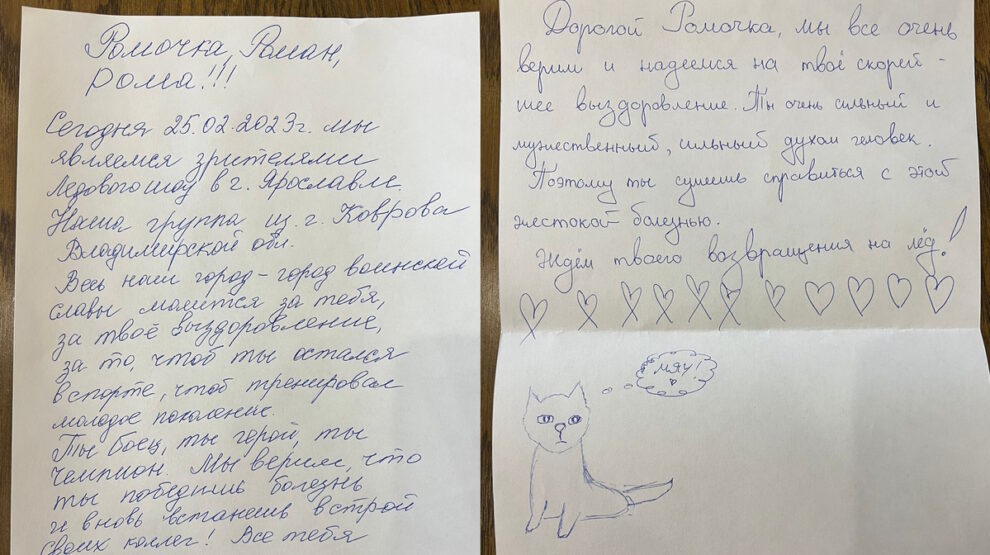 Ромочка, Роман,
Рома!!!
Сегодня 25.02.2023г. мы
являемся зрителями
Ледового шоу в г. Ярославле.
Наша группа из г. Коврова
Владимирской обл.
Весь наш город - город воинской
славы молится за тебя,
за твоё выздоровление,
за то, чтоб ты остался
в спорте, чтоб тренировал
молодое поколение.
Ты боец, ты герой, ты
чемпион. Мы верим, что
ты победишь болезнь
и вновь встанешь в строй
своих коллег! Все тебя
Дорогой Ромочка, мы все очень
верим и надеемся на твоё скорей-
шее выздоровление. Ты очень сильный и
мужественный, сильный духом человек.
Поэтому ты сумеешь справиться с этой
жестокой болезнью.
Ждём твоего возвращения на лёд!
мяу!